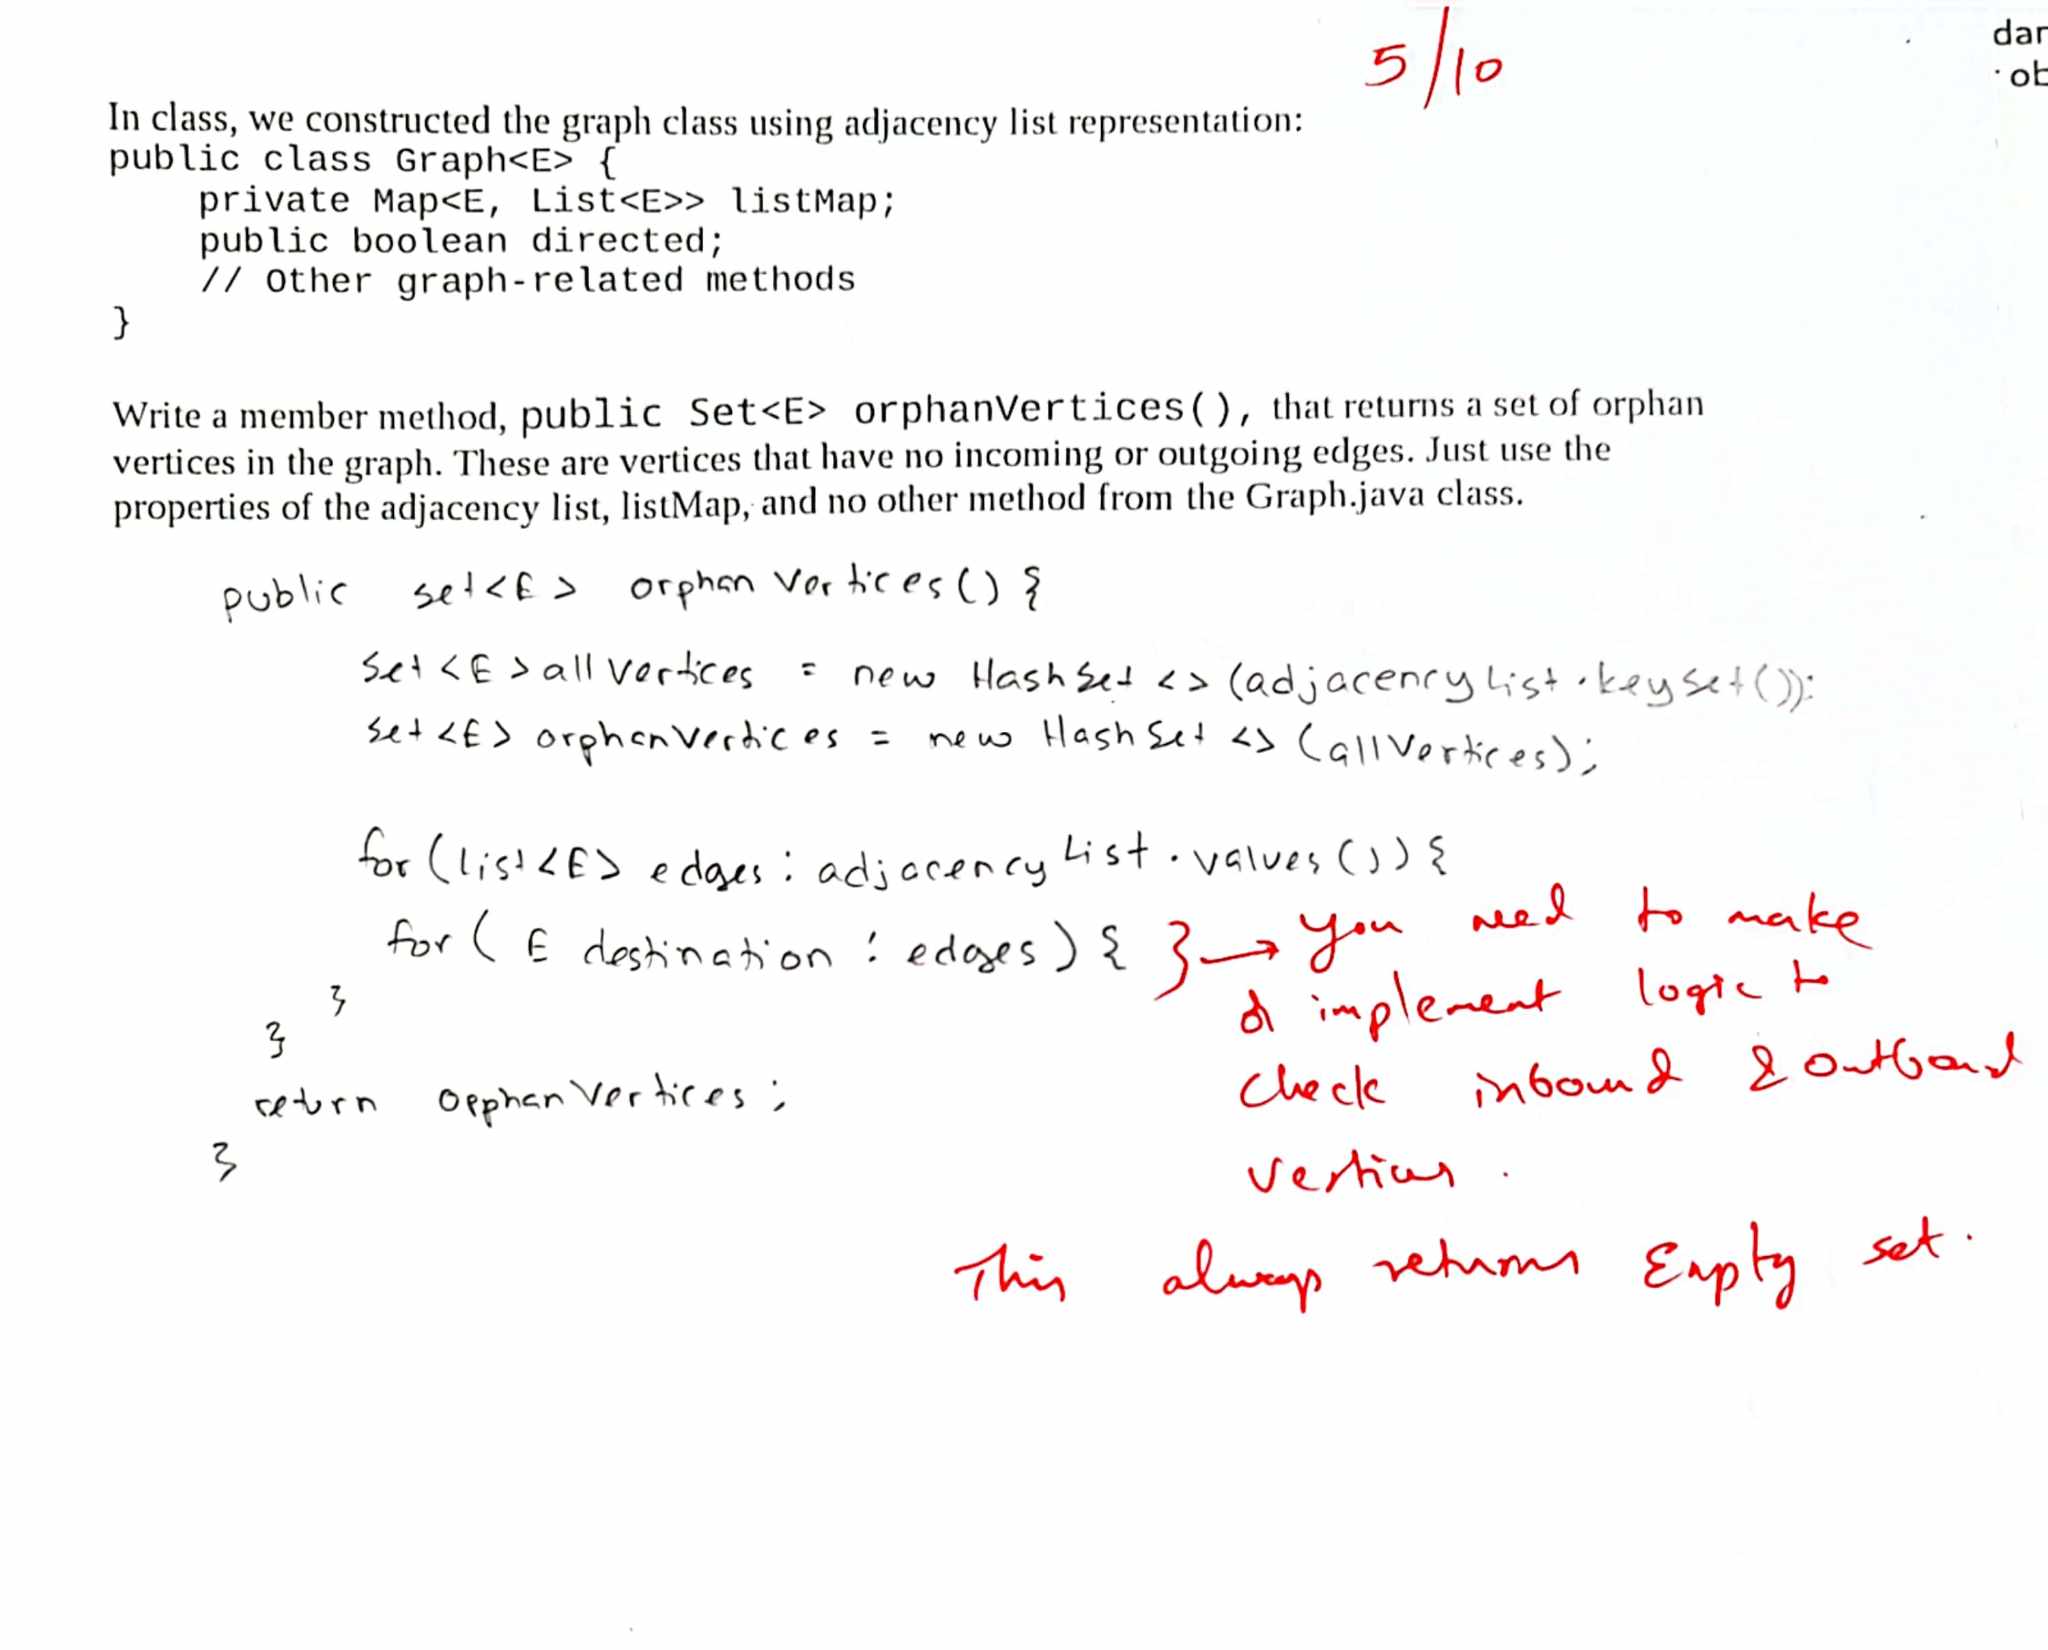 5/10
dar
· ob
In class, we constructed the graph class using adjacency list representation:
public class Graph<E> {
private Map<E, List<E>> listMap;
public boolean directed;
// Other graph-related methods
}
Write a member method, public Set<E> orphanVertices(), that returns a set of orphan
vertices in the graph. These are vertices that have no incoming or outgoing edges. Just use the
properties of the adjacency list, listMap, and no other method from the Graph.java class.
public set<E> orphan Vortices() {
Set <E> all Vortices = new HashSet <> (adjacency List.keyset());
Set <E> orphanVertices = new HashSet <> (allVortices);
for (list<E> edges : adjacency List.values()) {
for ( E destination : edges) { } → You need to make
implement logic to
}
}
check inbound & outbound
return opphanVertices;
}
vertices.
This always returns Empty set.